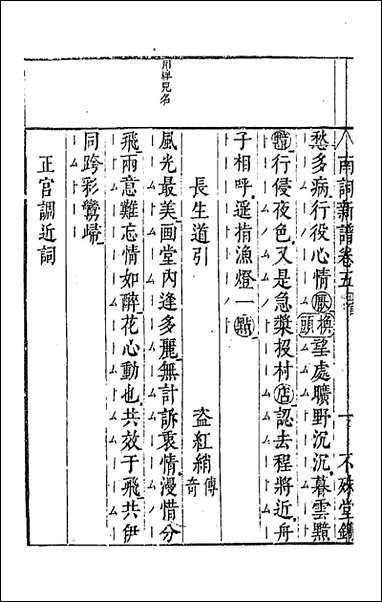 南詞新譜卷五 不殊堂
愁多病行役心情厭換頭望處曠野沉沉暮雲黯
黯行侵夜色又是急槳投村店認去程將近舟
子相呼遙指漁燈一點
長生道引 盗紅綃傳奇
用牌兒名
風光最美画堂內逢多麗無計訴衷情漫惜分
飛兩意難忘情如醉花心動也共效于飛共伊
同跨彩鸞
正宮調近詞